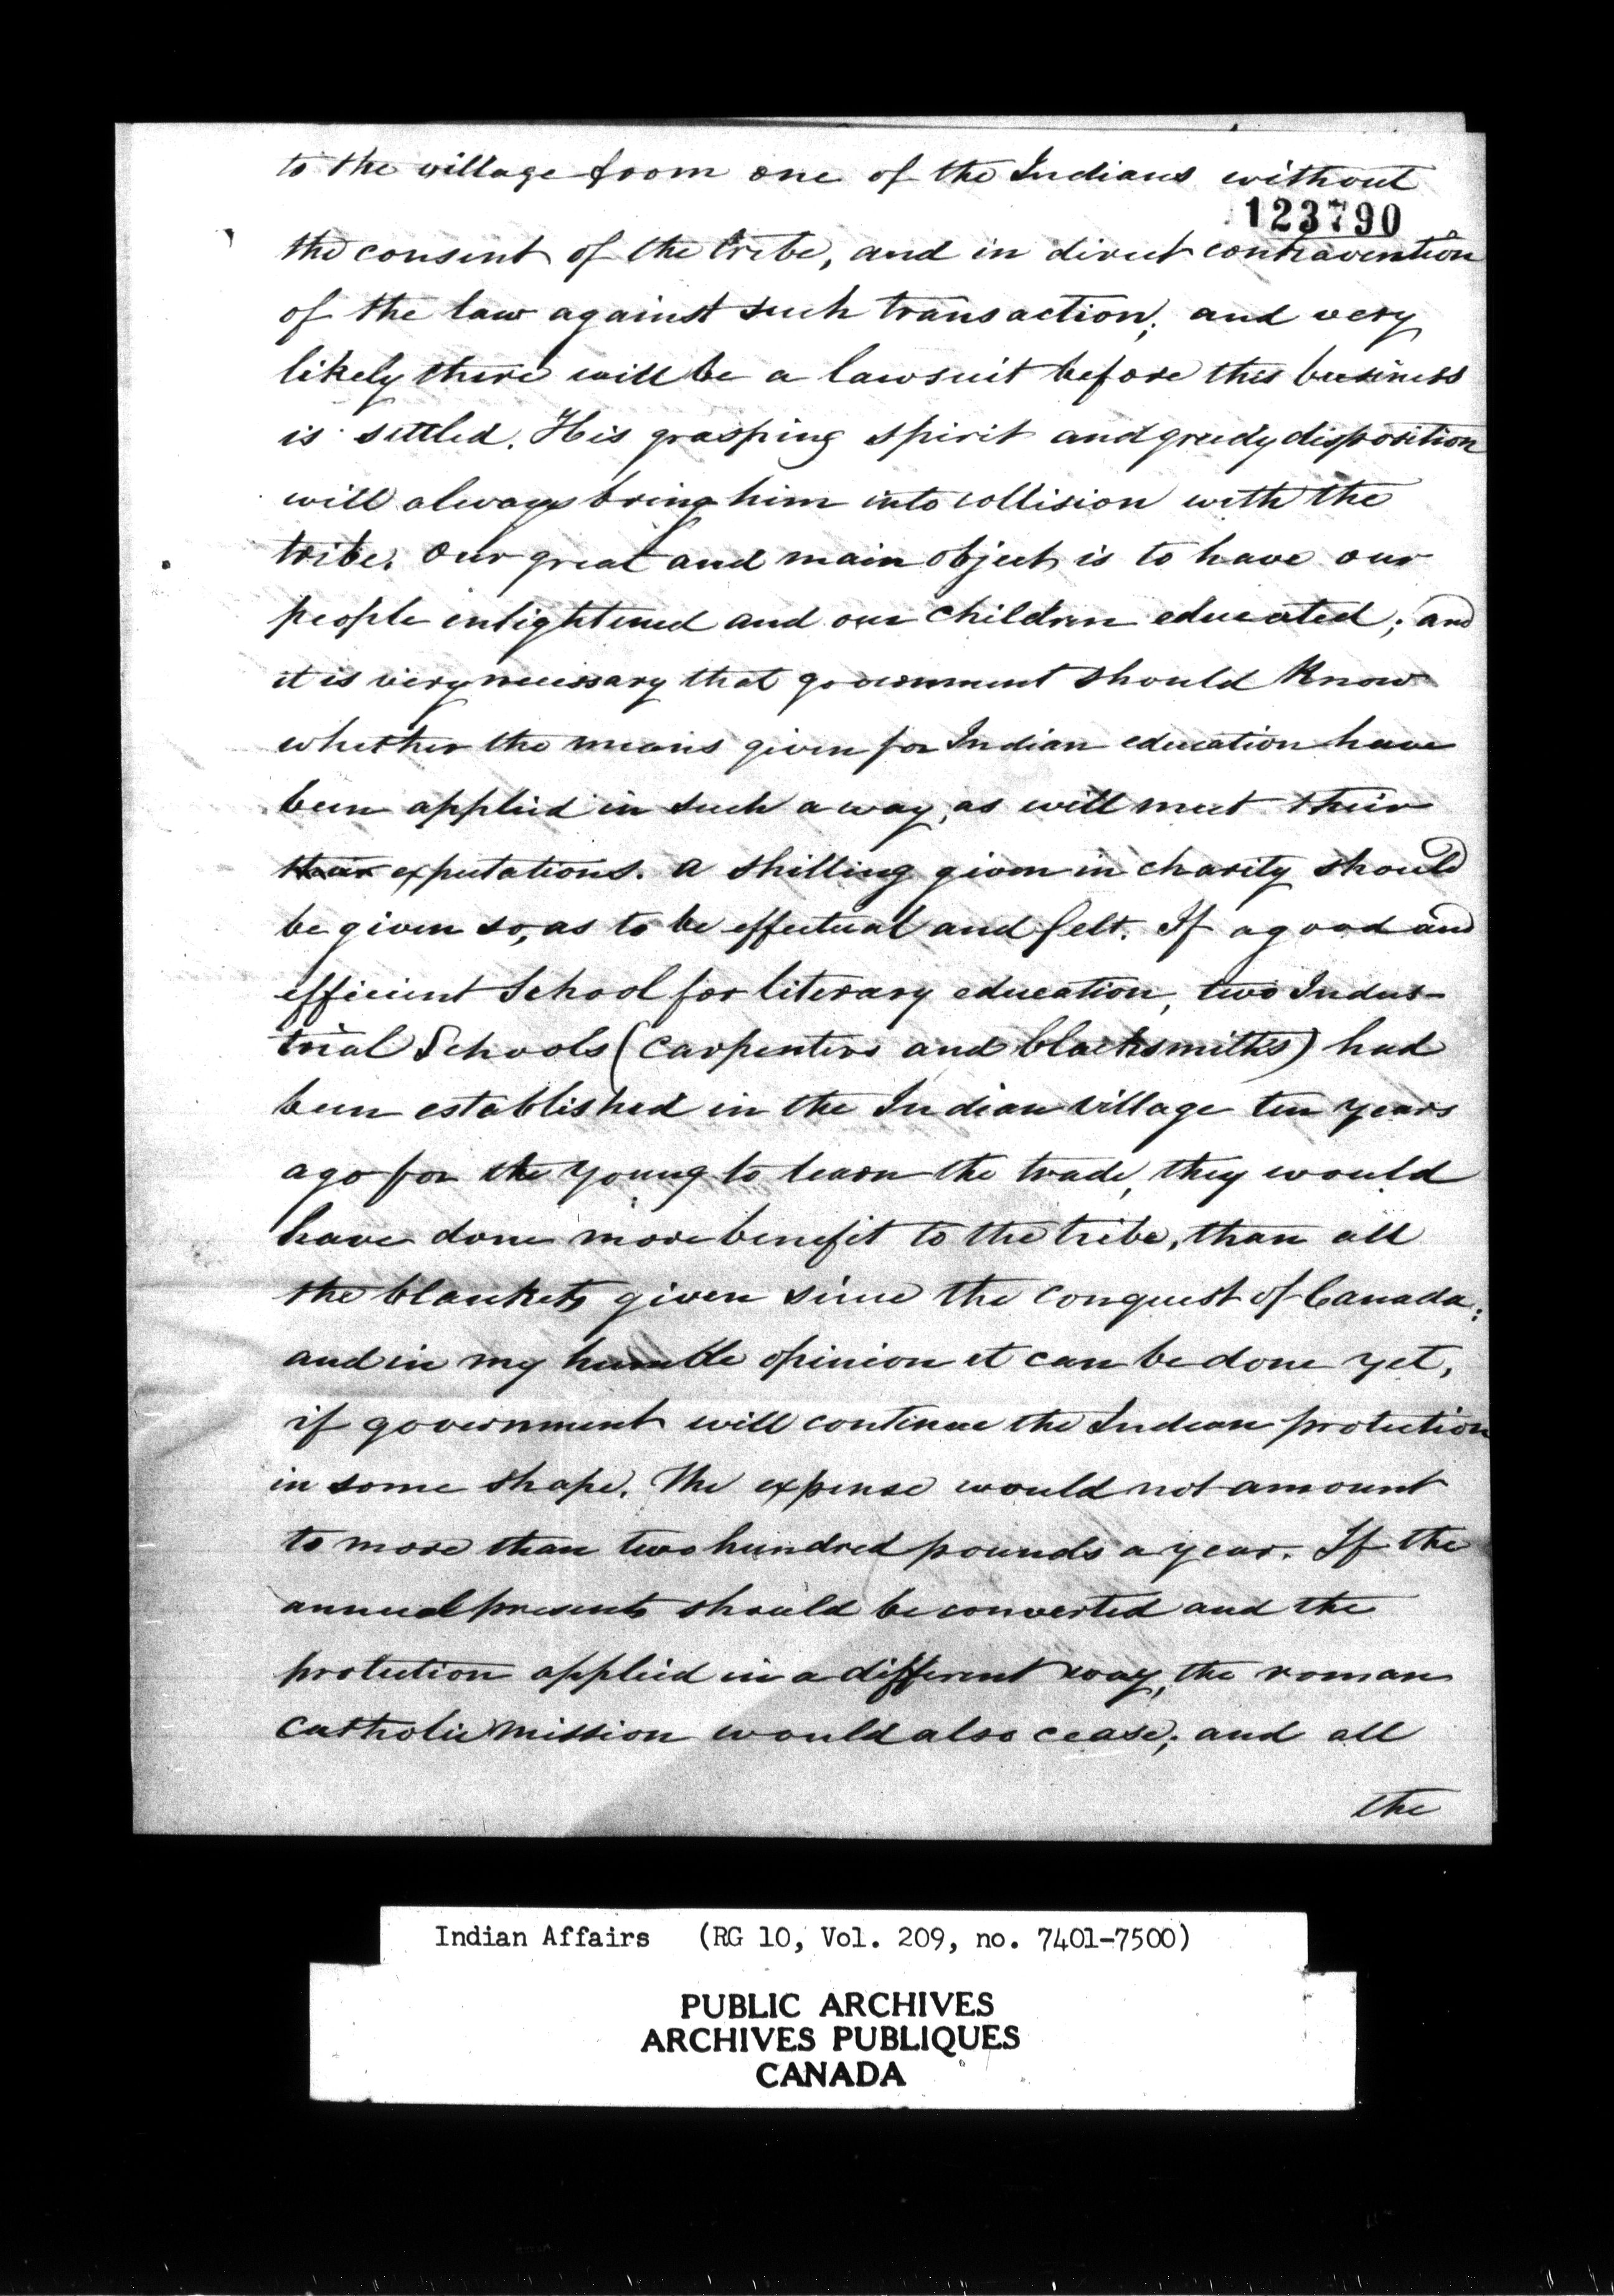 to the village from one of the Indians without
123790
the consent of the tribe, and in direct contravention
of the law against such transaction; and very
likely there will be a lawsuit before this business
is settled. His grasping spirit and greedy disposition
will always bring him into collision with the
tribe. Our great and main object is to have our
people enlightened and our children educated; and
it is very necessary that government should know
whether the means given for Indian education have
been applied in such a way, as will meet their
their expectations. A shilling given in charity should
be given so, as to be effectual and felt. If a good and
efficient School for literary education, two Indus-
trial Schools (Carpenters and blacksmiths) had
been established in the Indian village ten years
ago for the young to learn the trade, they would
have done more benefit to the tribe, than all
the blankets given since the conquest of Canada;
and in my humble opinion it can be done yet,
if government will continue the Indian protection
in some shape. The expense would not amount
to more than two hundred pounds a year. If the
annual presents should be converted and the
protection applied in a different way, the roman
Catholic Mission would also cease; and all
the
Indian Affairs (RG 10, Vol. 209, no. 7401-7500)
PUBLIC ARCHIVES
ARCHIVES PUBLIQUES
CANADA